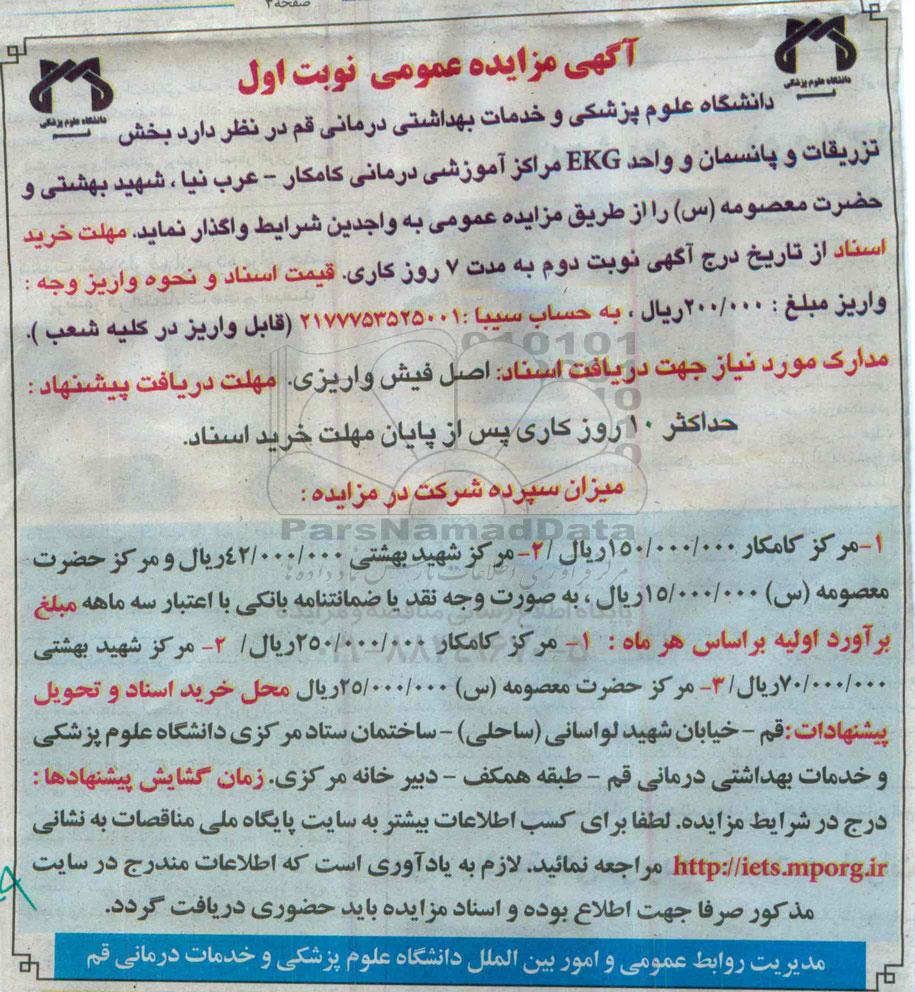 صفحه ۳
آگهی مزایده عمومی نوبت اول
دانشگاه علوم پزشکی
دانشگاه علوم پزشکی
دانشگاه علوم پزشکی و خدمات بهداشتی درمانی قم در نظر دارد بخش
تزریقات و پانسمان و واحد EKG مراکز آموزشی درمانی کامکار - عرب نیا ، شهید بهشتی و
حضرت معصومه (س) را از طریق مزایده عمومی به واجدین شرایط واگذار نماید. مهلت خرید
اسناد از تاریخ درج آگهی نوبت دوم به مدت ۷ روز کاری. قیمت اسناد و نحوه واریز وجه :
واریز مبلغ : ۲۰۰/۰۰۰ریال ، به حساب سیبا :۲۱۷۷۷۵۳۵۲۵۰۰۱ (قابل واریز در کلیه شعب ).
مدارک مورد نیاز جهت دریافت اسناد: اصل فیش واریزی. مهلت دریافت پیشنهاد :
حداکثر ۱۰ روز کاری پس از پایان مهلت خرید اسناد.
میزان سپرده شرکت در مزایده :
ParsNamadData
۱-مرکز کامکار ۱۵۰/۰۰۰/۰۰۰ریال /۲-مرکز شهید بهشتی ۴۲/۰۰۰/۰۰۰ریال و مرکز حضرت
معصومه (س) ۱۵/۰۰۰/۰۰۰ریال ، به صورت وجه نقد یا ضمانتنامه بانکی با اعتبار سه ماهه مبلغ
برآورد اولیه براساس هر ماه : ۱- مرکز کامکار ۲۵۰/۰۰۰/۰۰۰ریال/ ۲- مرکز شهید بهشتی
۷۰/۰۰۰/۰۰۰ریال/ ۳- مرکز حضرت معصومه (س) ۲۵/۰۰۰/۰۰۰ریال محل خرید اسناد و تحویل
پیشنهادات :قم - خیابان شهید لواسانی (ساحلی) - ساختمان ستاد مرکزی دانشگاه علوم پزشکی
و خدمات بهداشتی درمانی قم - طبقه همکف - دبیر خانه مرکزی. زمان گشایش پیشنهادها :
درج در شرایط مزایده. لطفا برای کسب اطلاعات بیشتر به سایت پایگاه ملی مناقصات به نشانی
http://iets.mporg.ir مراجعه نمائید. لازم به یادآوری است که اطلاعات مندرج در سایت
مذکور صرفا جهت اطلاع بوده و اسناد مزایده باید حضوری دریافت گردد.
مدیریت روابط عمومی و امور بین الملل دانشگاه علوم پزشکی و خدمات درمانی قم